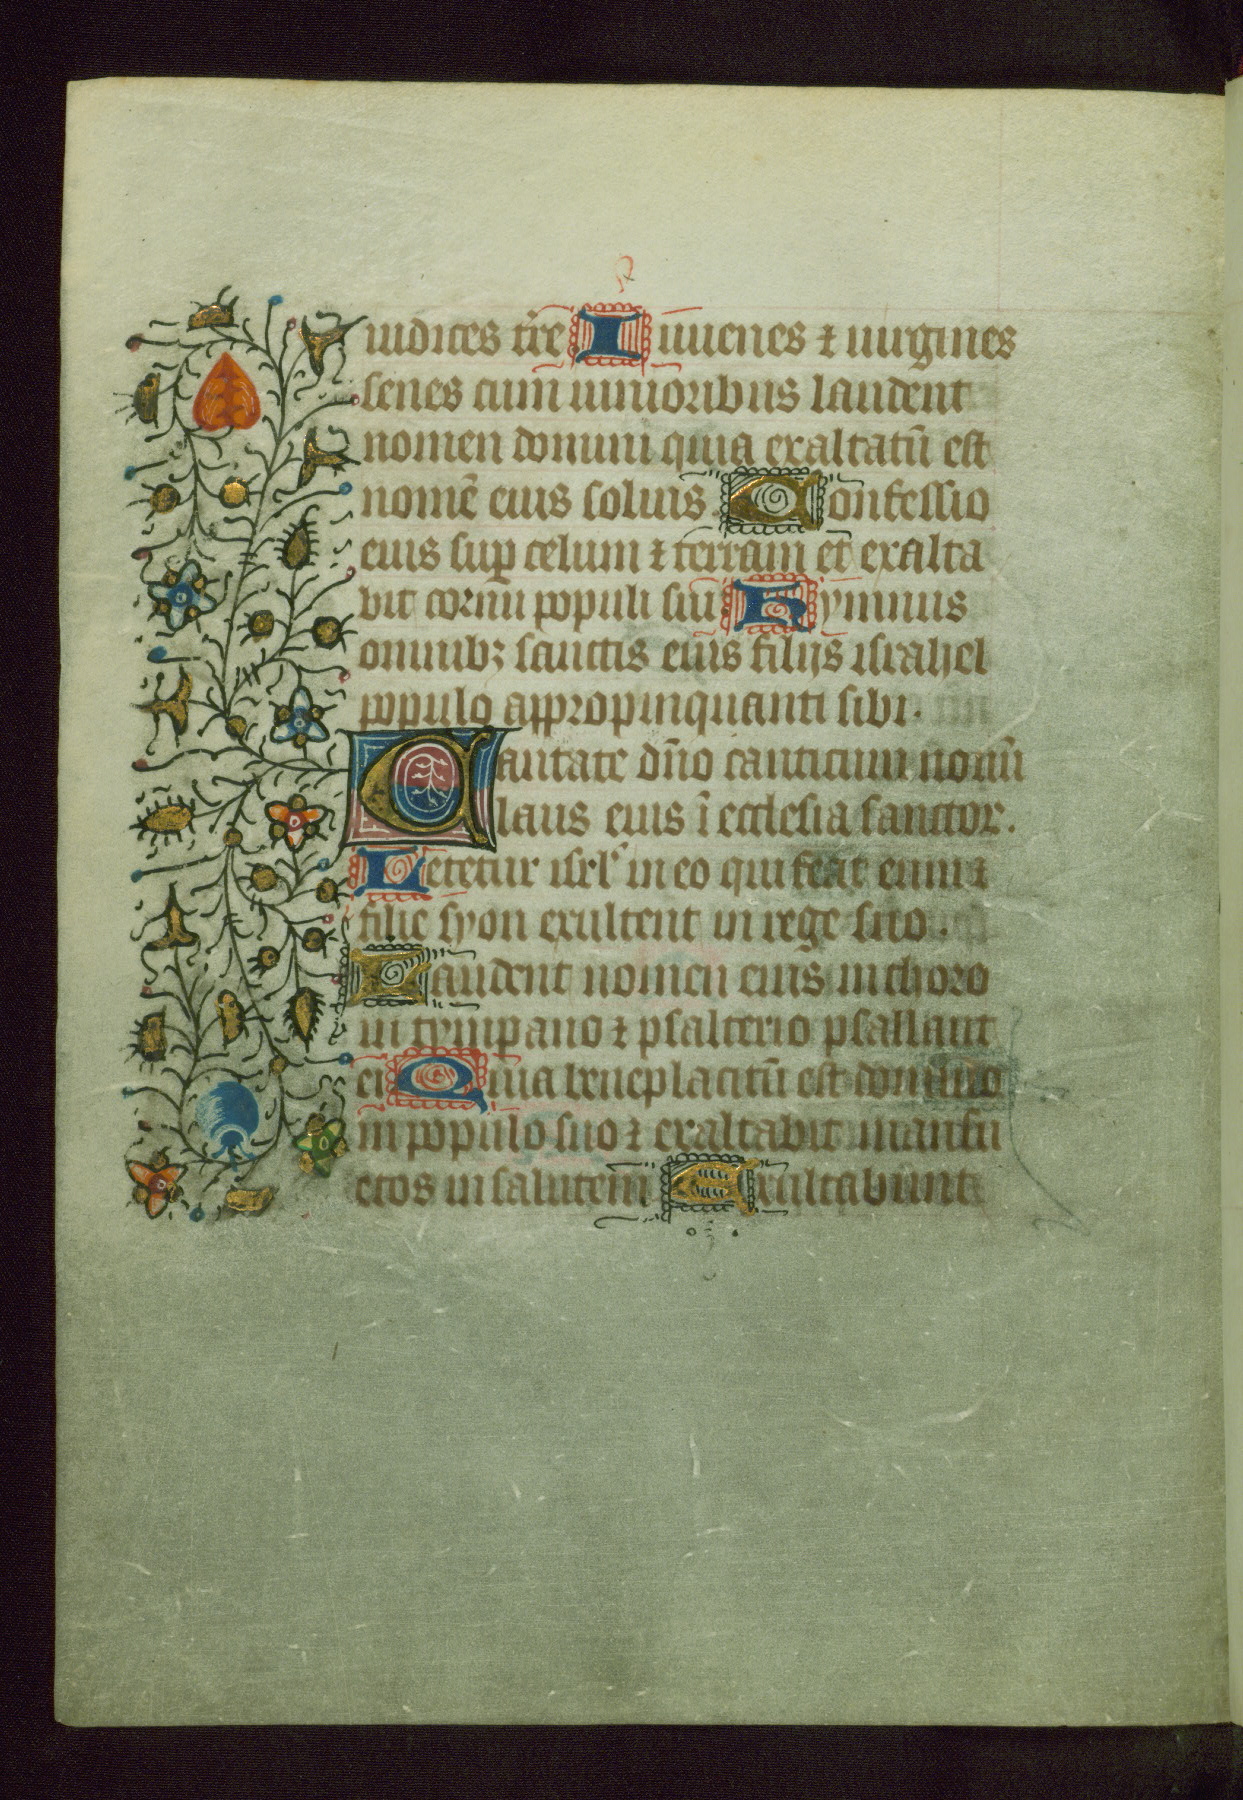 iudices t̄re Iuuenes ⁊ uirgines
senes cum iunioribus laudent
nomen domini quia exaltatū est
nomē eius solius Confessio
eius sup̱ celum ⁊ terram et exalta
bit cornu populi sui Hymnus
omnibꝫ sanctis eius filijs israhel
populo appropinquanti sibi.
Cantate dn̄o canticum nouū
laus eius ī ecclesia sanctor.
Letetur isrl' in eo qui fecit eum ⁊
filie syon exultent in rege suo.
Laudent nomen eius in choro
in tympano ⁊ psalterio psallant
ei Quia beneplacitū est domino
in populo suo ⁊ exaltabit mansu
etos in salutem Exultabunt